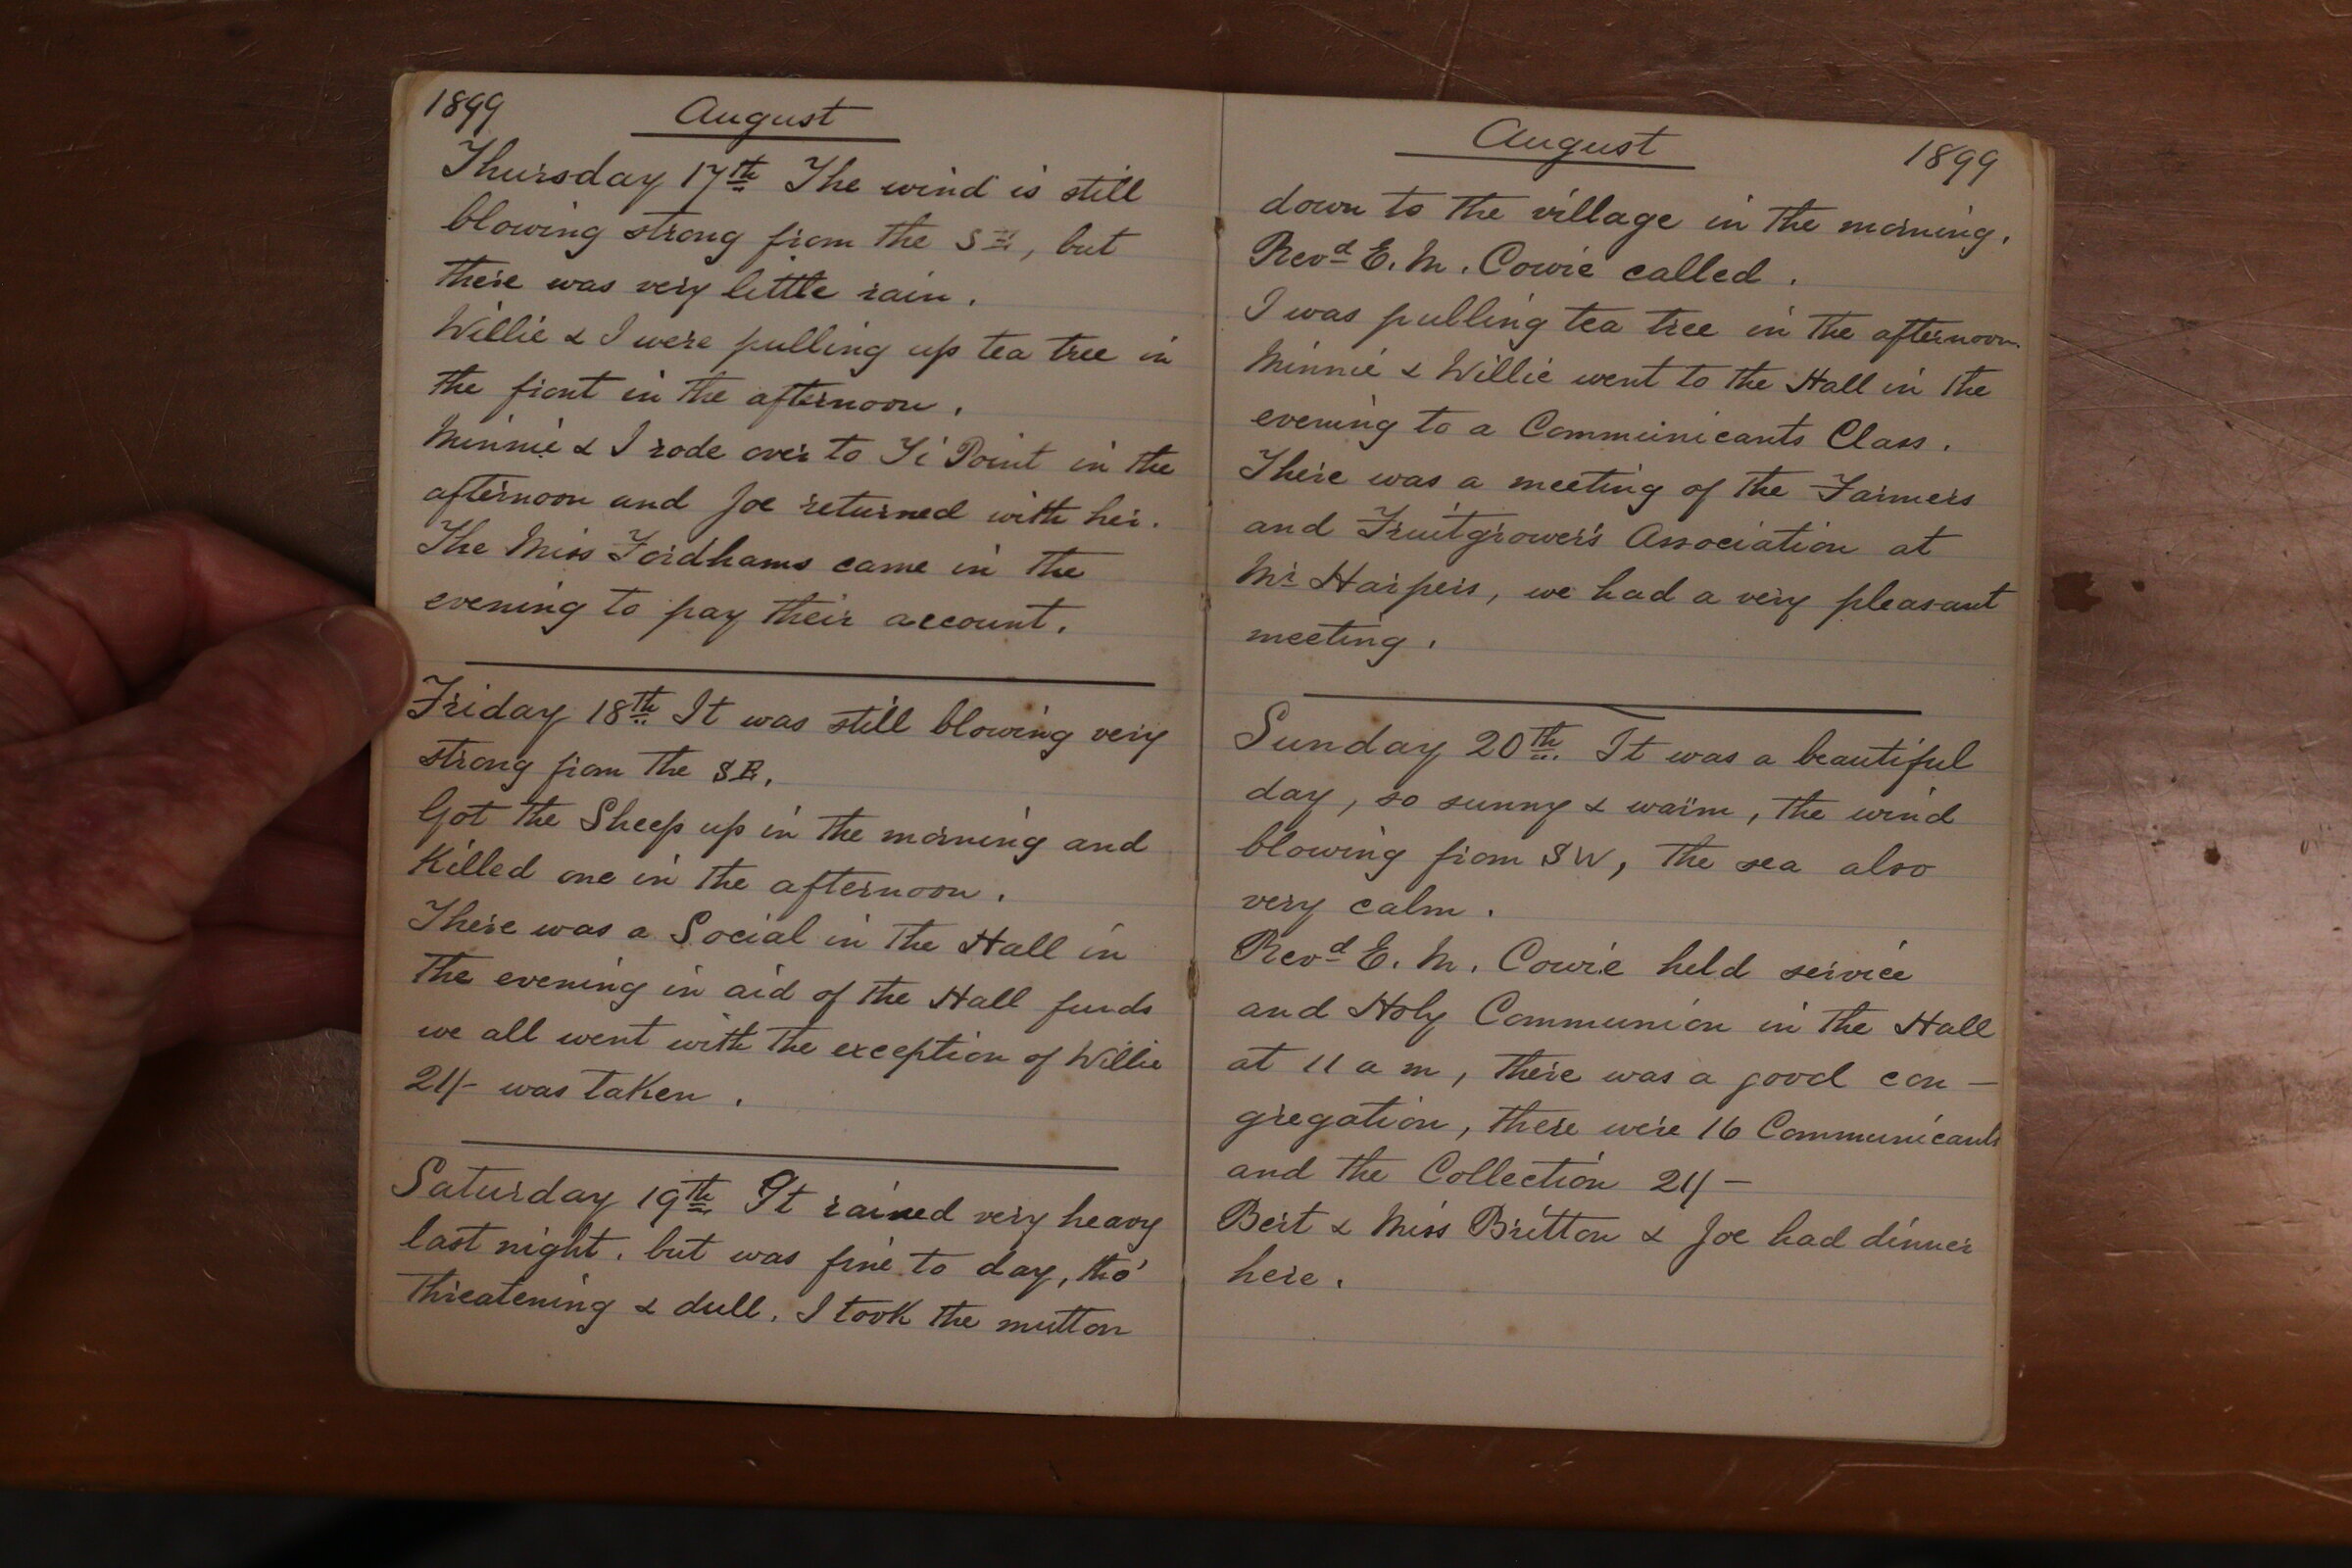 1899 August
Thursday 17th The wind is still
blowing strong from the SE, but
there was very little rain.
Willie & I were pulling up tea tree in
the front in the afternoon.
Minnie & I rode over to Ti Point in the
afternoon and Joe returned with her.
The Miss Fordhams came in the
evening to pay their account.
Friday 18th It was still blowing very
strong from the SE.
Got the Sheep up in the morning and
Killed one in the afternoon.
There was a Social in the Hall in
the evening in aid of the Hall funds
we all went with the exception of Willie
21/- was taken.
Saturday 19th It rained very heavy
last night. but was fine to day, tho'
threatening & dull. I took the mutton
August 1899
down to the village in the morning.
Revd E. M. Cowie called.
I was pulling tea tree in the afternoon.
Minnie & Willie went to the Hall in the
evening to a Communicants Class.
There was a meeting of the Farmers
and Fruitgrower's Association at
Mr Harpers, we had a very pleasant
meeting.
Sunday 20th. It was a beautiful
day, so sunny & warm, the wind
blowing from SW, the sea also
very calm.
Revd E. M. Cowie held service
and Holy Communion in the Hall
at 11 a m, there was a good con-
gregation, there were 16 Communicants
and the Collection 21/-
Bert & Miss Britton & Joe had dinner
here.